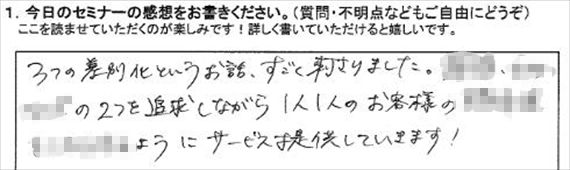 1. 今日のセミナーの感想をお書きください。(質問・不明点などもご自由にどうぞ)
ここを読ませていただくのが楽しみです！詳しく書いていただけると嬉しいです。
3つの差別化というお話、すごく刺さりました。
の2つを追求しながら1人1人のお客様の
ようにサービス提供していきます！